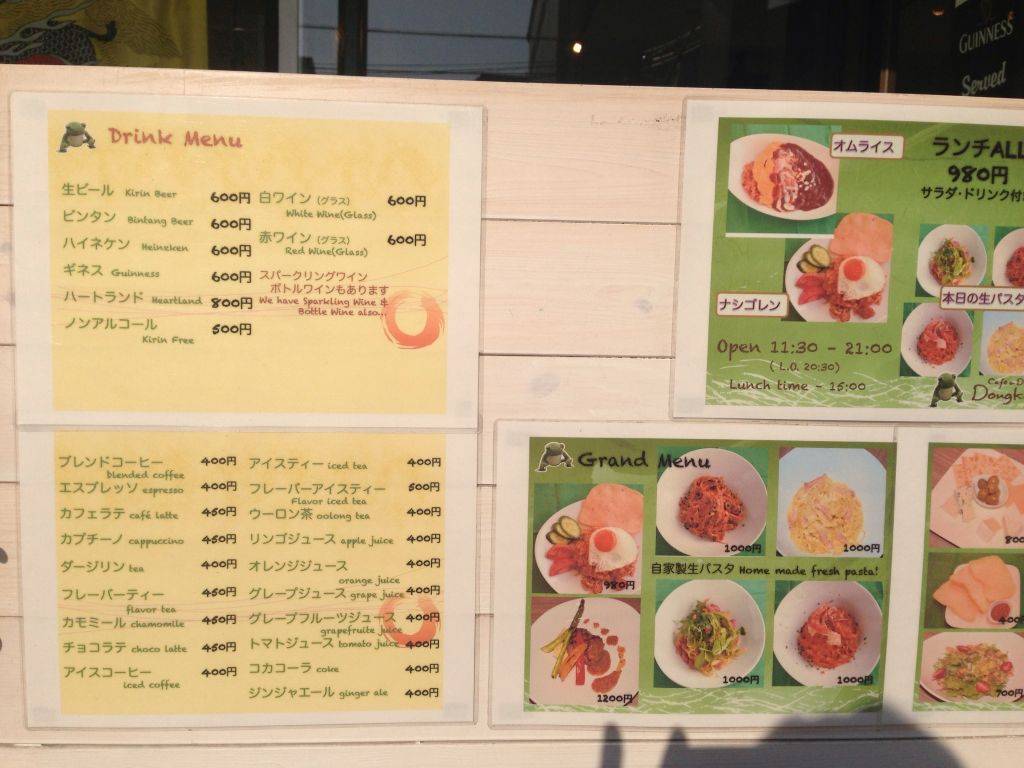 GUINNESS
Served
Drink Menu
生ビール Kirin Beer 600円
ビンタン Bintang Beer 600円
ハイネケン Heineken 600円
ギネス Guinness 600円
ハートランド Heartland 800円
ノンアルコール 500円
Kirin Free
白ワイン (グラス) 600円
White Wine(Glass)
赤ワイン (グラス) 600円
Red Wine(Glass)
スパークリングワイン
ボトルワインもあります
We have Sparkling Wine &
Bottle Wine also...
ブレンドコーヒー 400円
blended coffee
エスプレッソ espresso 400円
カフェラテ café latte 450円
カプチーノ cappuccino 450円
ダージリン tea 400円
フレーバーティー 450円
flavor tea
カモミール chamomile 450円
チョコラテ choco latte 450円
アイスコーヒー 400円
iced coffee
アイスティー iced tea 400円
フレーバーアイスティー 500円
Flavor iced tea
ウーロン茶 oolong tea 400円
リンゴジュース apple juice 400円
オレンジジュース 400円
orange juice
グレープジュース grape juice 400円
グレープフルーツジュース 400円
grapefruite juice
トマトジュース tomato juice 400円
コカコーラ coke 400円
ジンジャエール ginger ale 400円
オムライス
ランチALL
980円
サラダ・ドリンク付
ナシゴレン
本日の生パスタ
Open 11:30 - 21:00
( L.O. 20:30)
Lunch time - 15:00
Grand Menu
980円
1000円
1000円
自家製生パスタ Home made fresh pasta!
1200円
1000円
1000円
800
400
700円